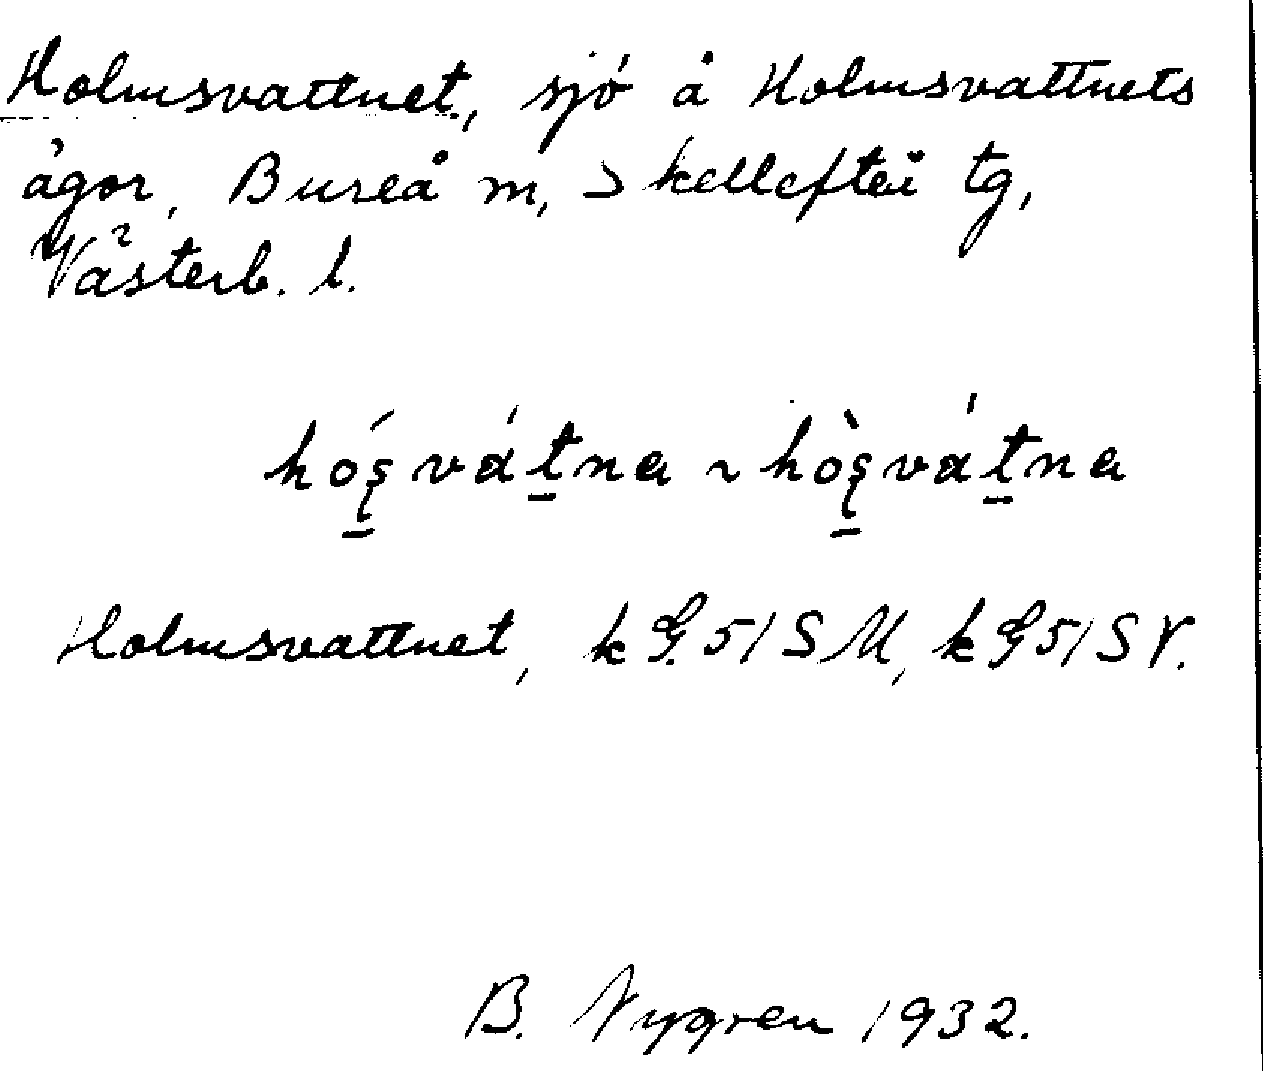 Holmsvattnet, sjö å Holmsvattnets
ägor, Bureå m, Skellefteå tg,
Västerb. l.
hó̱ȿvát̠na ~ hò̱ȿvát̠na
Holmsvattnet, kG. 51 SM, kG 51 SV.
B. Nygren 1932.